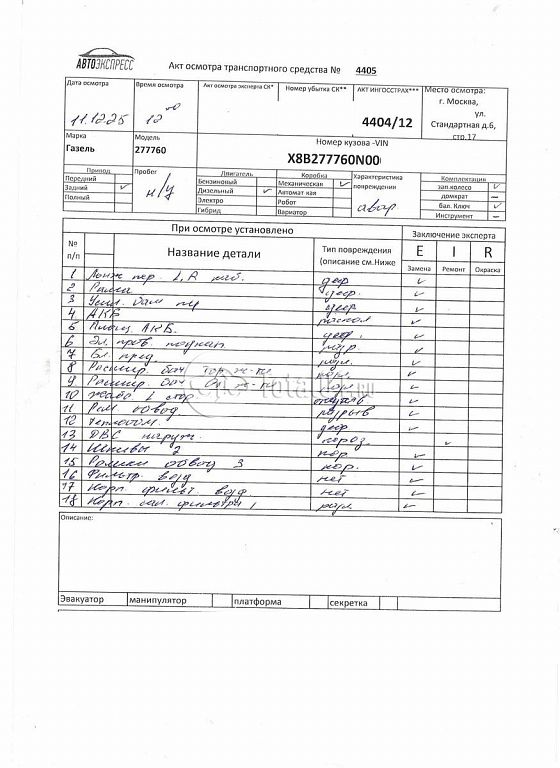 АВТОЭКСПРЕСС
Акт осмотра транспортного средства № 4405
Дата осмотра Время осмотра Акт осмотра эксперта СК* Номер убытка СК** АКТ ИНГОССТРАХ*** Место осмотра:
г. Москва,
ул.
11.12.25 12 00 4404/12 Стандартная д.6,
стр.17
Марка Модель Номер кузова -VIN
Газель 277760 X8B277760N00
Привод Пробег Двигатель Коробка Характеристика повреждения Комплектация
Передний н/у Бензиновый Механическая ✓ авар зап.колесо ✓
Задний ✓ Дизельный ✓ Автомат кая домкрат –
Полный Электро Робот бал. Ключ ✓
Гибрид Вариатор Инструмент –
При осмотре установлено Заключение эксперта
№ п/п Название детали Тип повреждения (описание см.Ниже E I R
Замена Ремонт Окраска
1 Лонж пер. L, R деф ✓
2 Рама деф. ✓
3 Усил. бам деф ✓
4 АКБ раскол ✓
5 Площ АКБ. деф. ✓
6 Эл. пров. разр ✓
7 Бл. пред. разл. ✓
8 Расшир. бач разл. ✓
9 Расшир. бач ✓
10 L ✓
11 Рем обвод разрыв ✓
12 деф ✓
13 ДВС ✓
14 Шкивы 2 кор. ✓
15 Ролики обвод 3 кор. ✓
16 Фильтр. возд нет ✓
17 Корп. фильт. возд. нет ✓
18 Корп. фильтра разл. ✓
Описание:
Эвакуатор манипулятор платформа секретка